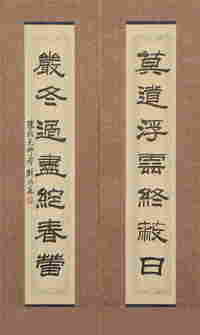 莫遣浮雲終蔽日
嚴冬過盡綻春蕾